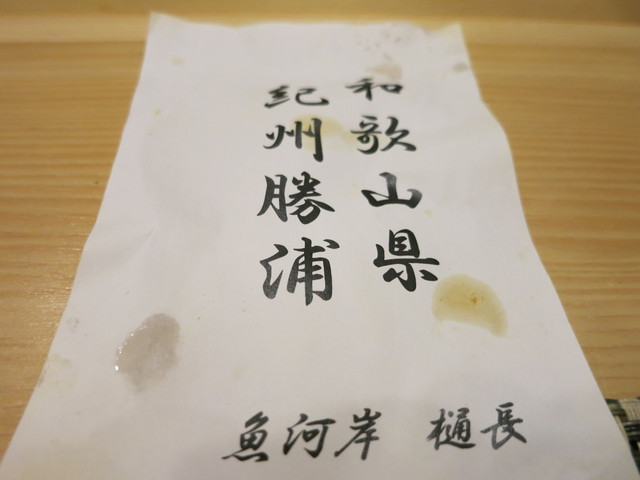 和歌山県
紀州勝浦
魚河岸 樋長